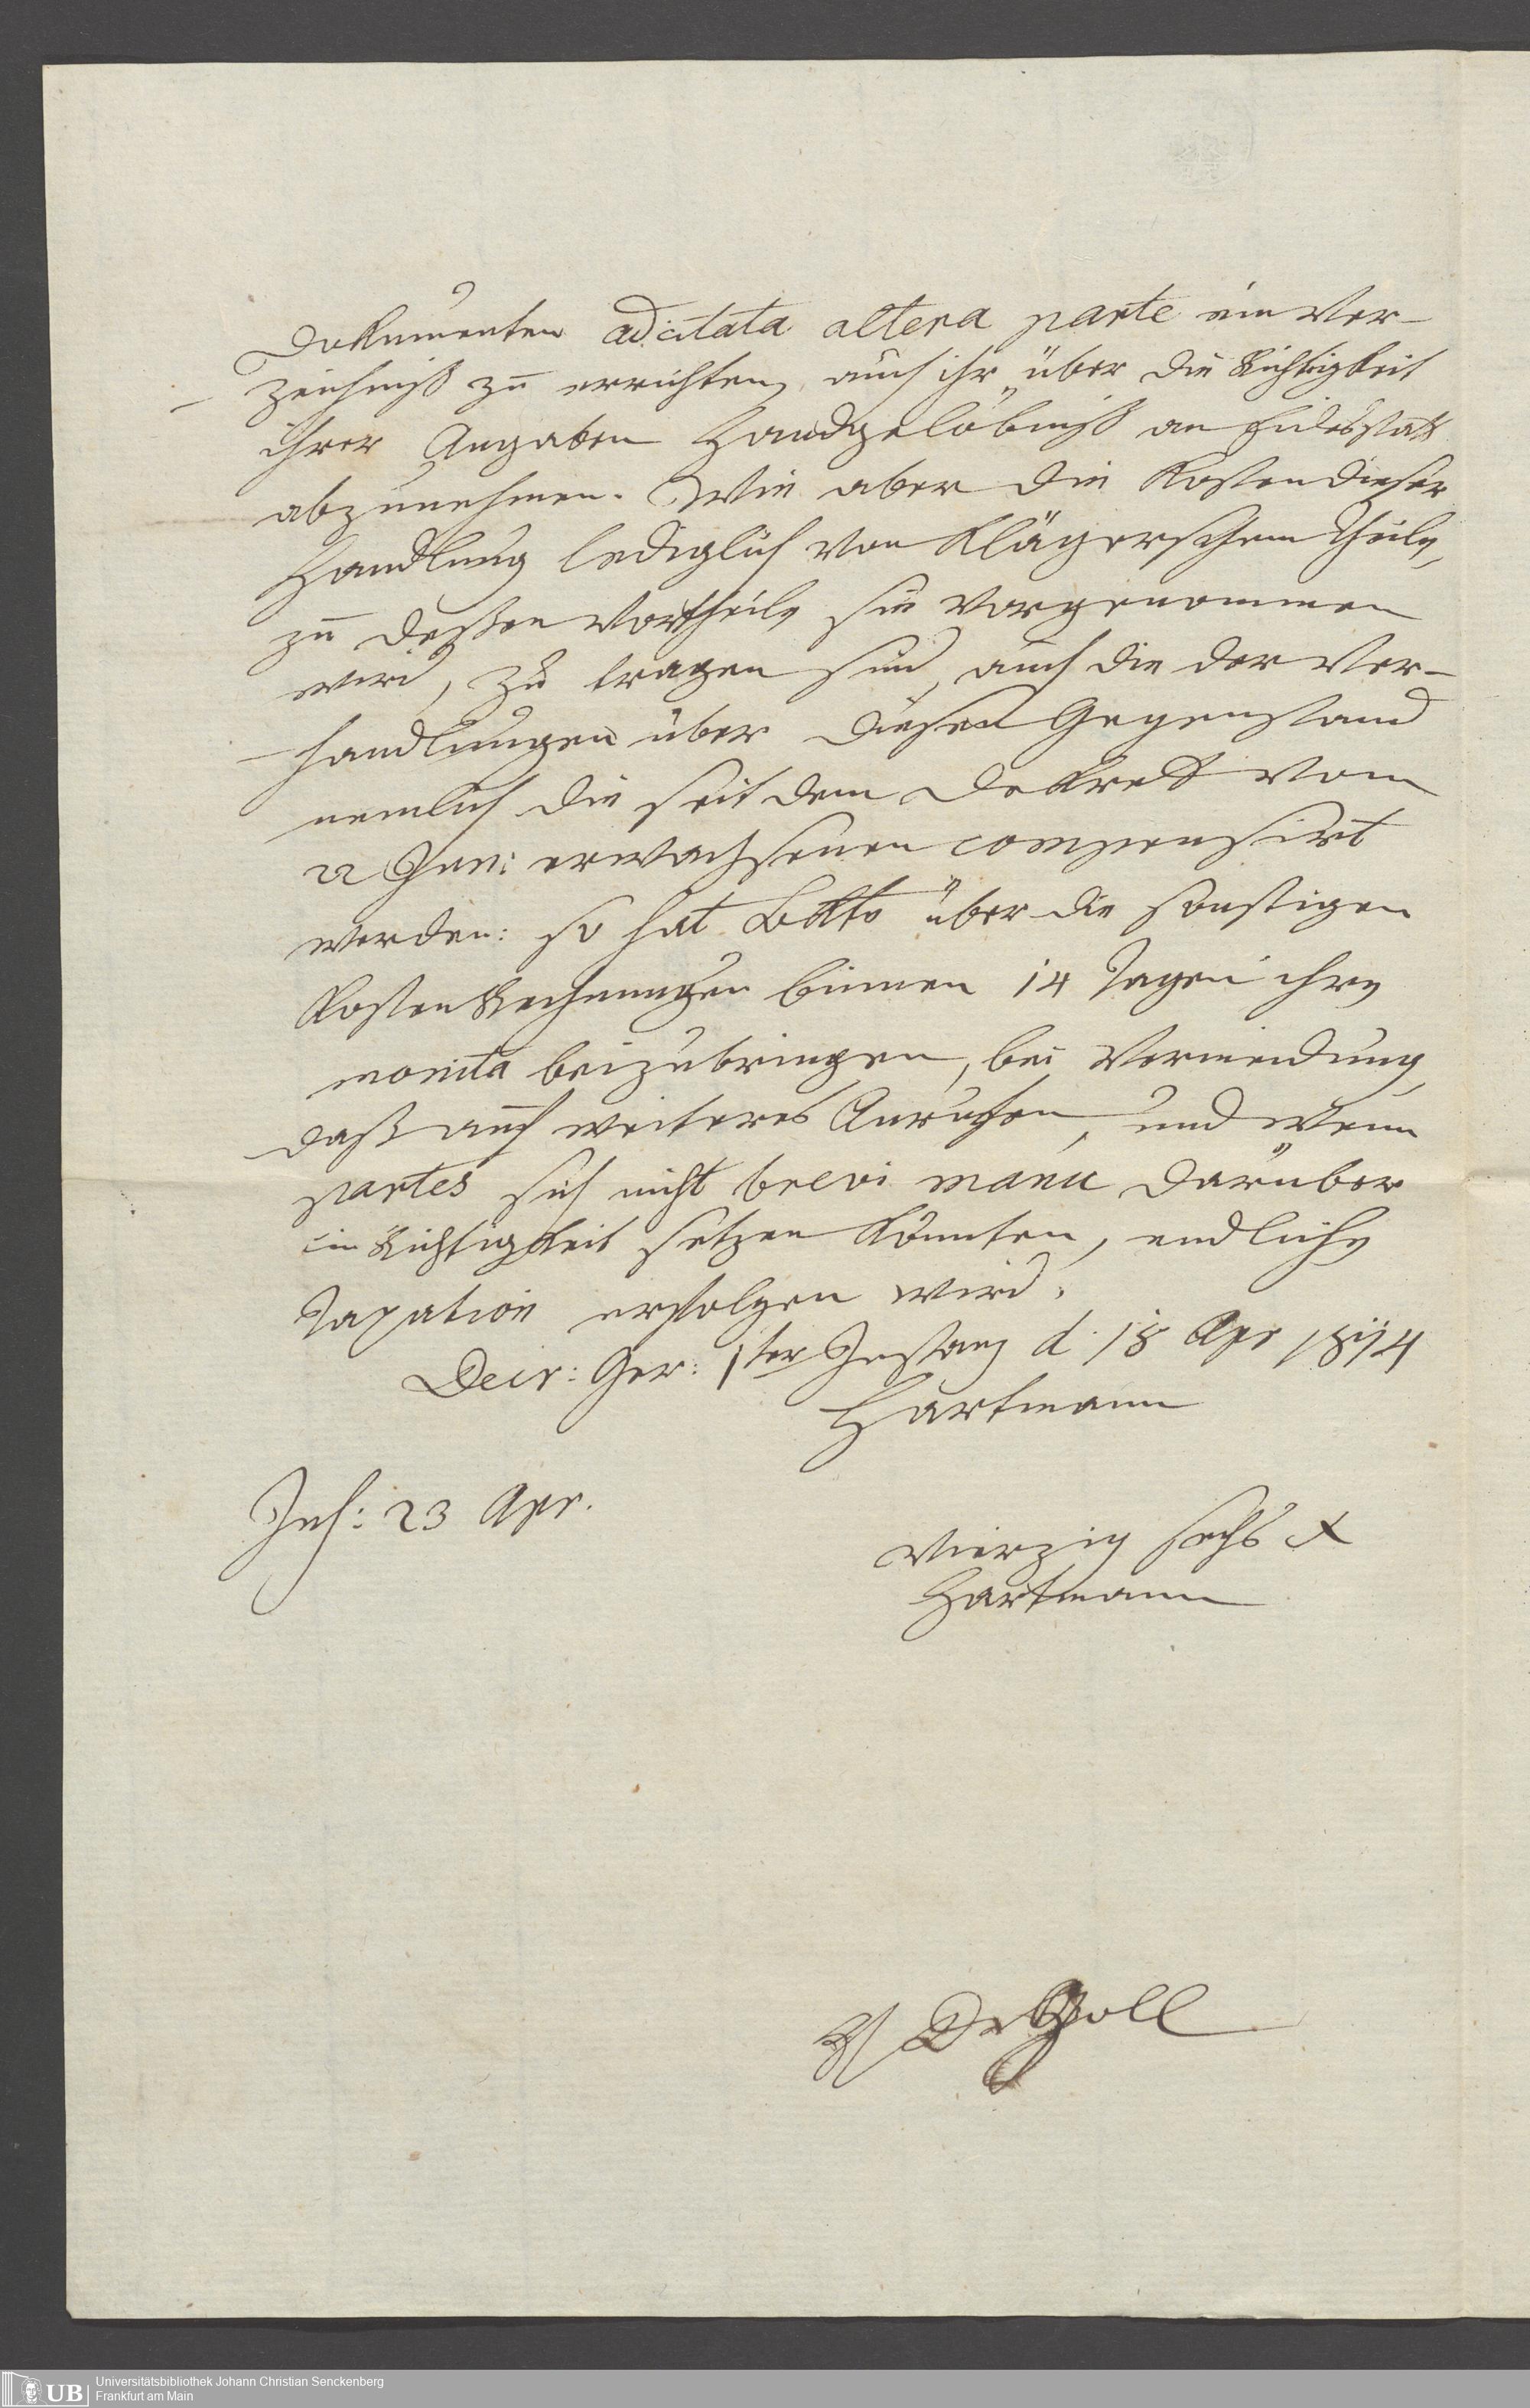 Dokumenten ad citata altera parte ein Ver-
zeichniß zu errichten, auch ihr über die Richtigkeit
ihrer Angaben Handgelöbniß an Eidesstatt
abzunehmen. Wie aber die Kosten dieser
Handlung lediglich von Klägerschem Theile,
zu dessen Vortheile sie vorgenommen
wird, zu tragen sind, auch die der Ver-
handlungen über diesen Gegenstand
nemlich die seit dem Dekret vom
22 Jan: erwachsenen compensirt
werden: so hat Bkte über die sonstigen
Kosten Rechnungen binnen 14 Tagen ihre
monita beizubringen, bei Vermeidung
daß auf weiteres Anrufen, und wenn
partes sich nicht brevi manu darüber
in Richtigkeit setzen könnten, endliche
Taxation erfolgen wird.
Decr: Ger: 1ter Instanz d. 18 Apr 1814
Hartmann
Ins: 23 Apr.
Vierzig sechs x
Hartmann
Universitätsbibliothek Johann Christian Senckenberg
UB
Frankfurt am Main